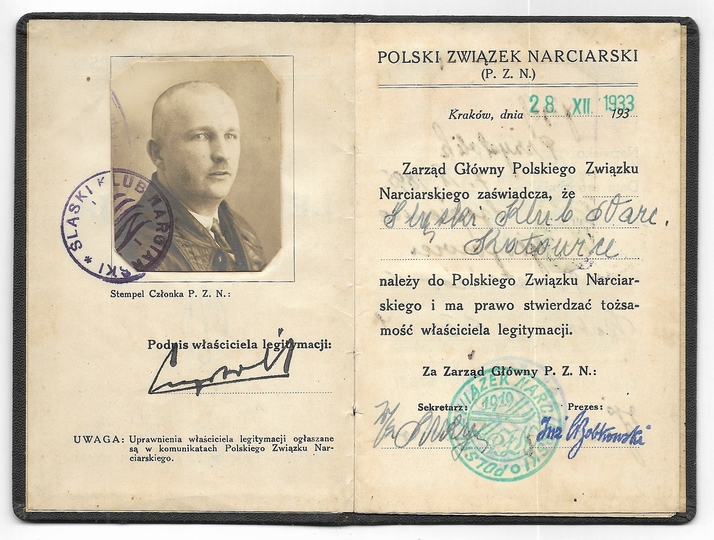 ŚLĄSKI KLUB NARCIARSKI *
Stempel Członka P. Z. N.:
Podpis właściciela legitymacji:
UWAGA: Uprawnienia właściciela legitymacji ogłaszane
są w komunikatach Polskiego Związku Nar-
ciarskiego.
POLSKI ZWIĄZEK NARCIARSKI
(P. Z. N.)
Kraków, dnia 28 XII. 1933 193
Zarząd Główny Polskiego Związku
Narciarskiego zaświadcza, że
Śląski Klub Narc.
Katowice
należy do Polskiego Związku Narciar-
skiego i ma prawo stwierdzać tożsa-
mość właściciela legitymacji.
Za Zarząd Główny P. Z. N.:
POLSKI ZWIĄZEK NARC
1919
Sekretarz: Prezes:
Inż Bobkowski